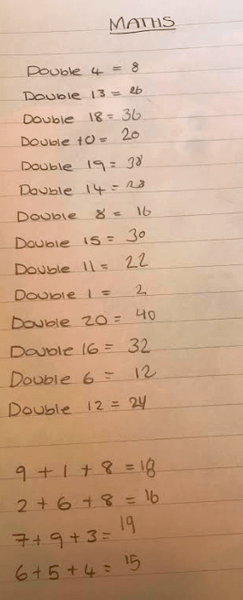 MATHS
Double 4 = 8
Double 13 = 26
Double 18 = 36
Double 10 = 20
Double 19 = 38
Double 14 = 28
Double 8 = 16
Double 15 = 30
Double 11 = 22
Double 1 = 2
Double 20 = 40
Double 16 = 32
Double 6 = 12
Double 12 = 24
9 + 1 + 8 = 18
2 + 6 + 8 = 16
7 + 9 + 3 = 19
6 + 5 + 4 = 15